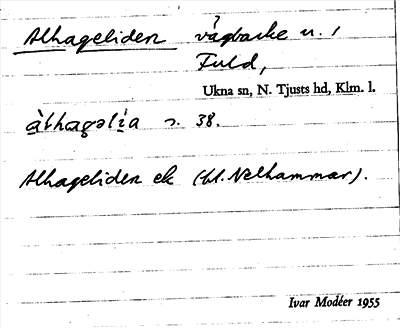 Alhageliden vägbacke u. /
Fuld,
Ukna sn, N. Tjusts hd, Klm. l.
àlhagəlìa s. 38.
Alhageliden ek (bl. Nelhammar).
Ivar Modéer 1955